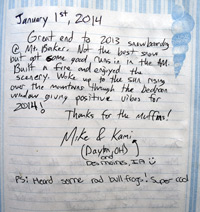 January 1st 2014
Great end to 2013 snowboarding
@ Mt. Baker. Not the best snow
but got some good runs in in the AM.
Built a fire and enjoyed the
scenery. Woke up to the sun rising
over the mountains through the bedroom
window giving positive vibes for
2014!
Thanks for the Muffins!
Mike & Kami
(Dayton, OH)
and
Des Moines, IA
PS: Heard some rad bull frogs! Super cool